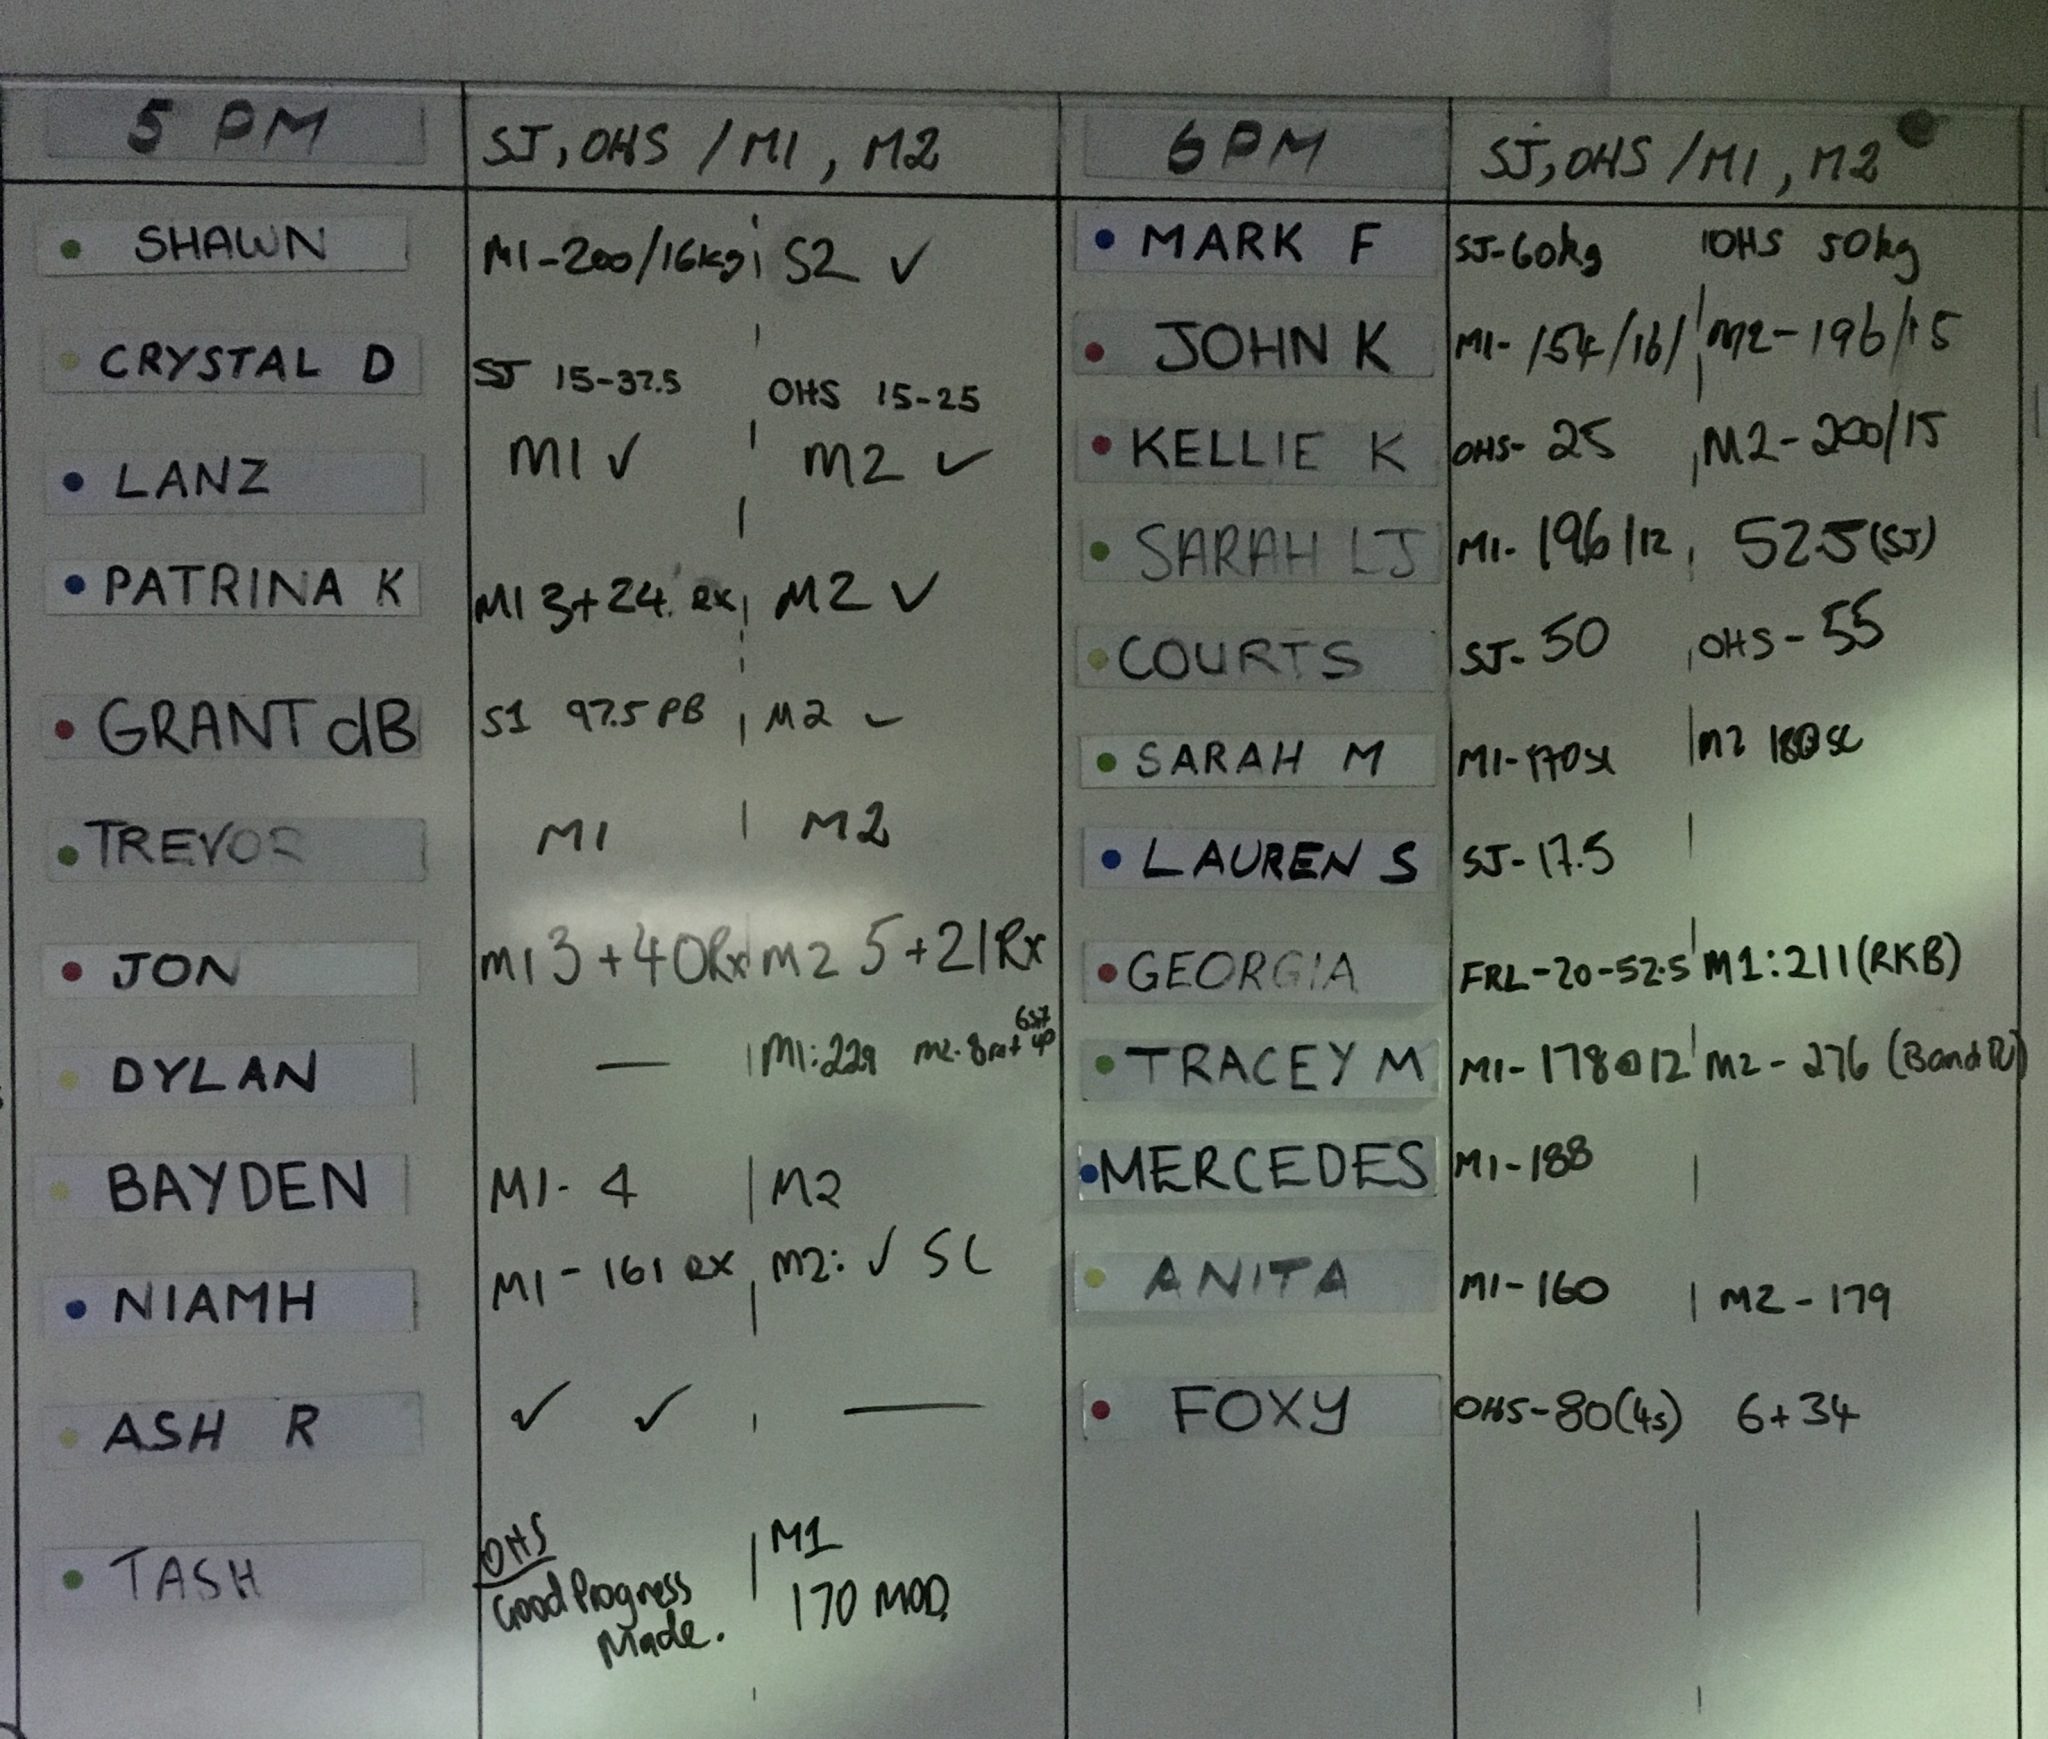 5 PM SJ, OHS / M1, M2
SHAWN M1-200/16kg S2 ✓
CRYSTAL D SJ 15-37.5 OHS 15-25
LANZ M1 ✓ M2 ✓
PATRINA K M1 3+24 RX M2 ✓
GRANT dB S1 97.5 PB M2 ✓
TREVOR M1 M2
JON M1 3+40 Rx M2 5+21 Rx
DYLAN — M1:229 M2.
BAYDEN M1- 4 M2
NIAMH M1 - 161 RX M2: ✓ SC
ASH R ✓ ✓ —
TASH OHS M1
Good Progress 170 MOD.
Made.
6PM SJ, OHS / M1, M2
MARK F SJ-60kg OHS 50kg
JOHN K M1- 154/16/ M2-196/15
KELLIE K OHS- 25 M2-200/15
SARAH LJ M1- 196/12 52.5 (SJ)
COURTS SJ- 50 OHS - 55
SARAH M M1-170 SC M2 180 SC
LAUREN S SJ-17.5
GEORGIA FRL-20-52.5 M1:211 (RKB)
TRACEY M M1-178@12 M2-276 (Band PU)
MERCEDES M1-188
ANITA M1-160 M2-179
FOXY OHS-80(4s) 6+34